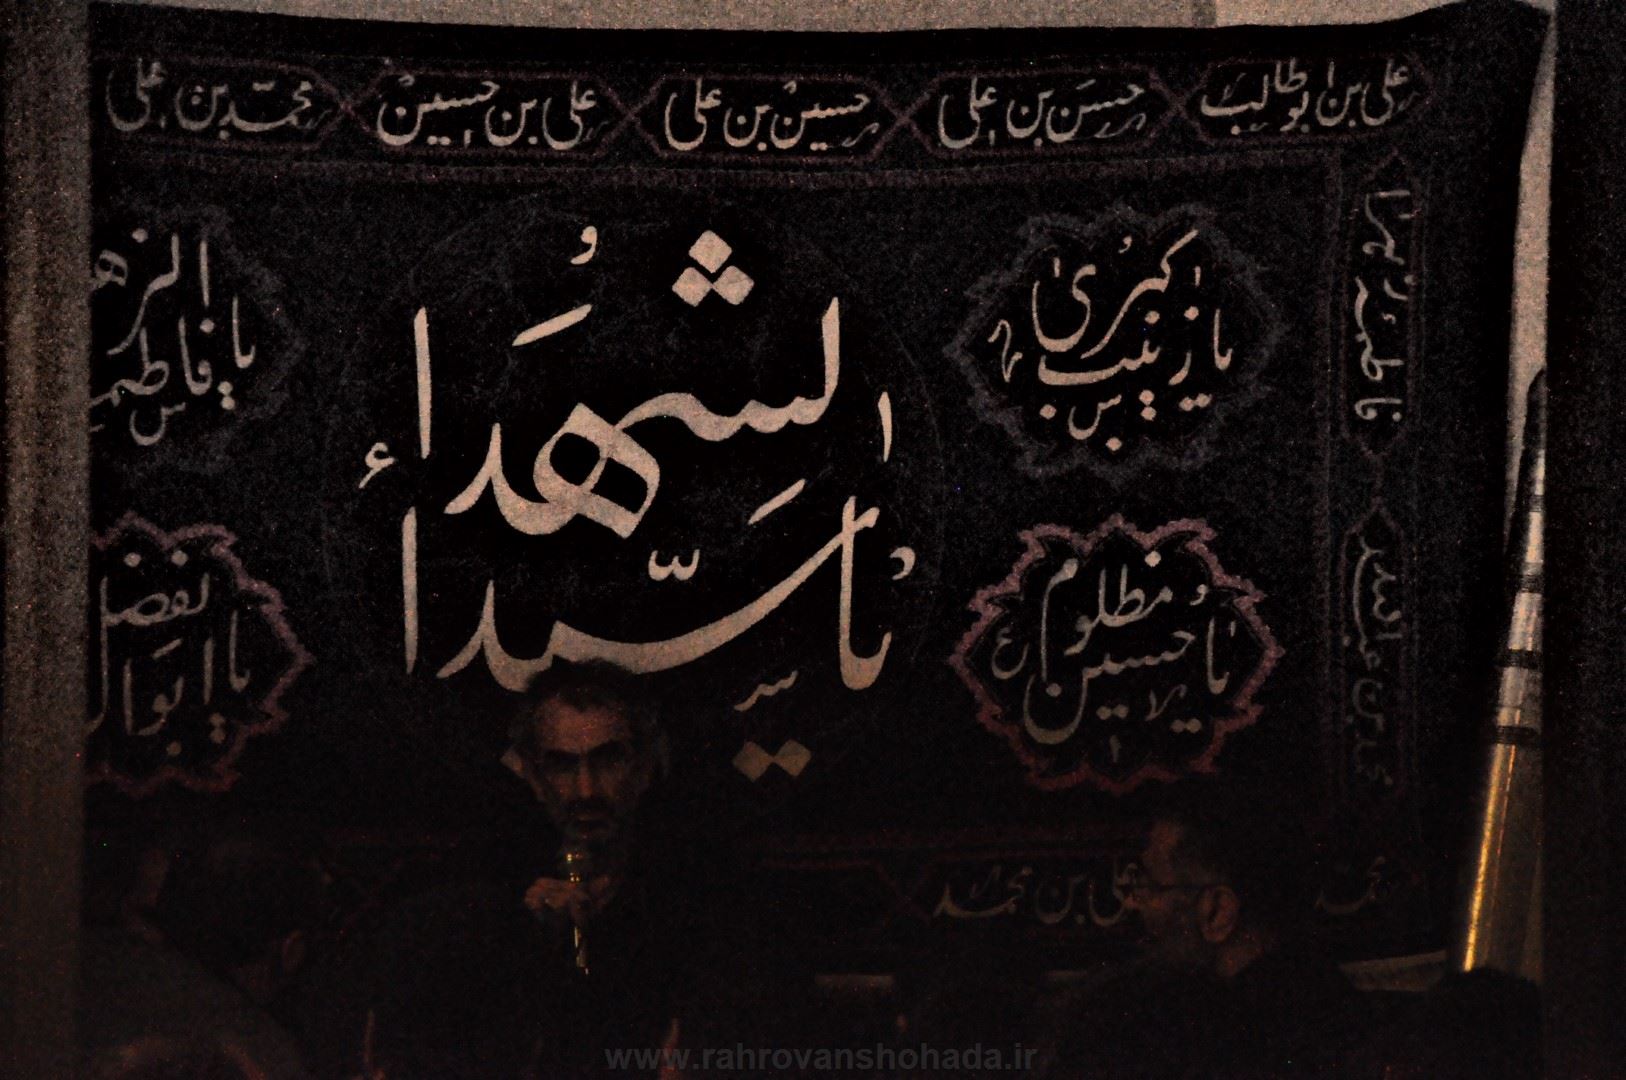 علی بن ابوطالب
حسن بن علی
حسین بن علی
علی بن حسین
محمد بن علی
فاطمه زهرا
محمد بن عبدالله
یا زینب کبری س
یا سیدالشهداء
یا فاطمه الزه
س
یا مظلوم حسین ع
یا ابوالفضل
علی بن محمد
محمد
www.rahrovanshohada.ir